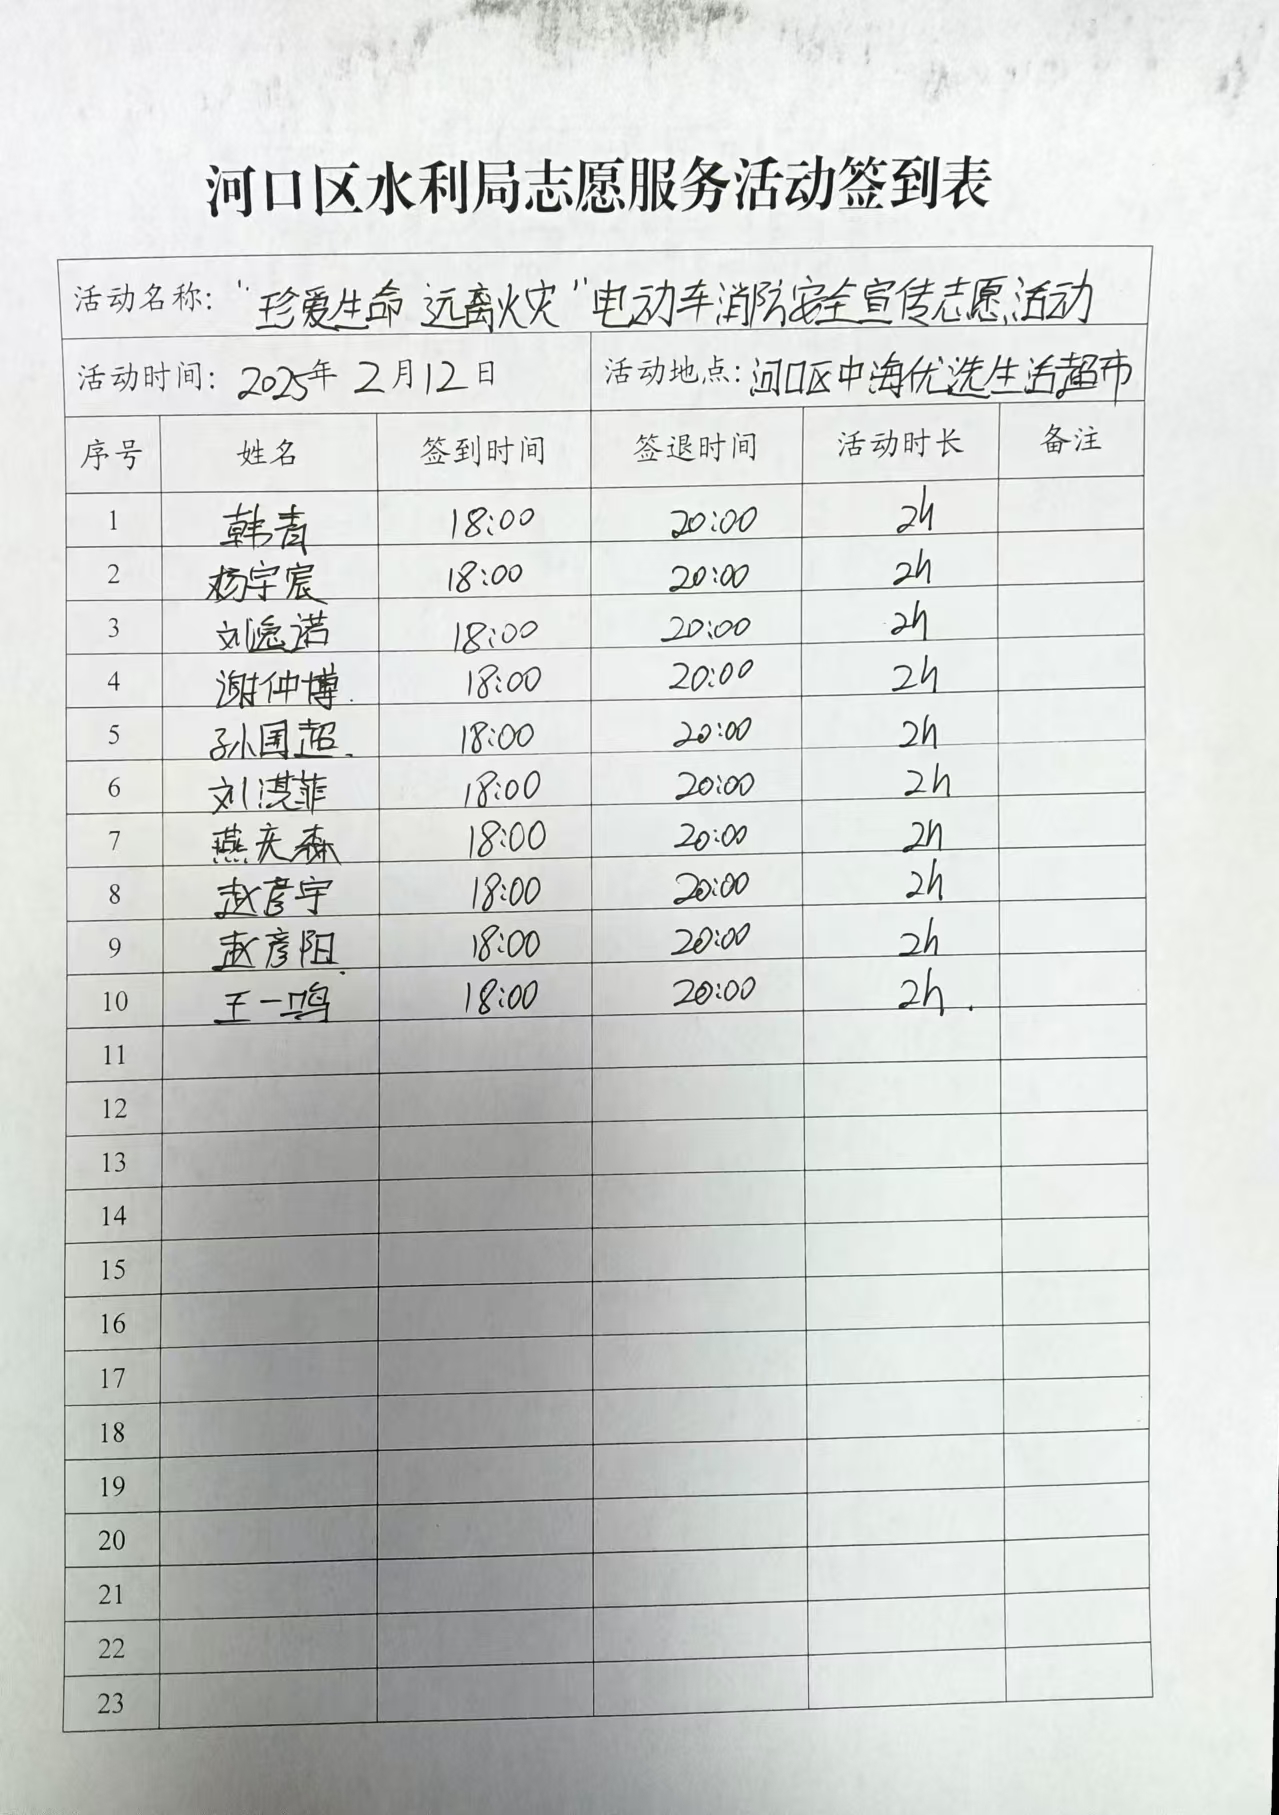 河口区水利局志愿服务活动签到表
活动名称：“珍爱生命 远离火灾”电动车消防安全宣传志愿活动
活动时间：2025年 2月12日 活动地点：河口区中海优选生活超市
序号 姓名 签到时间 签退时间 活动时长 备注
1 韩青 18:00 20:00 2h
2 杨宇宸 18:00 20:00 2h
3 刘逸诺 18:00 20:00 2h
4 谢仲博. 18:00 20:00 2h
5 孙国超. 18:00 20:00 2h
6 刘淇菲 18:00 20:00 2h
7 燕庆森 18:00 20:00 2h
8 赵彦宇 18:00 20:00 2h
9 赵彦阳. 18:00 20:00 2h
10 王一鸣 18:00 20:00 2h.
11
12
13
14
15
16
17
18
19
20
21
22
23